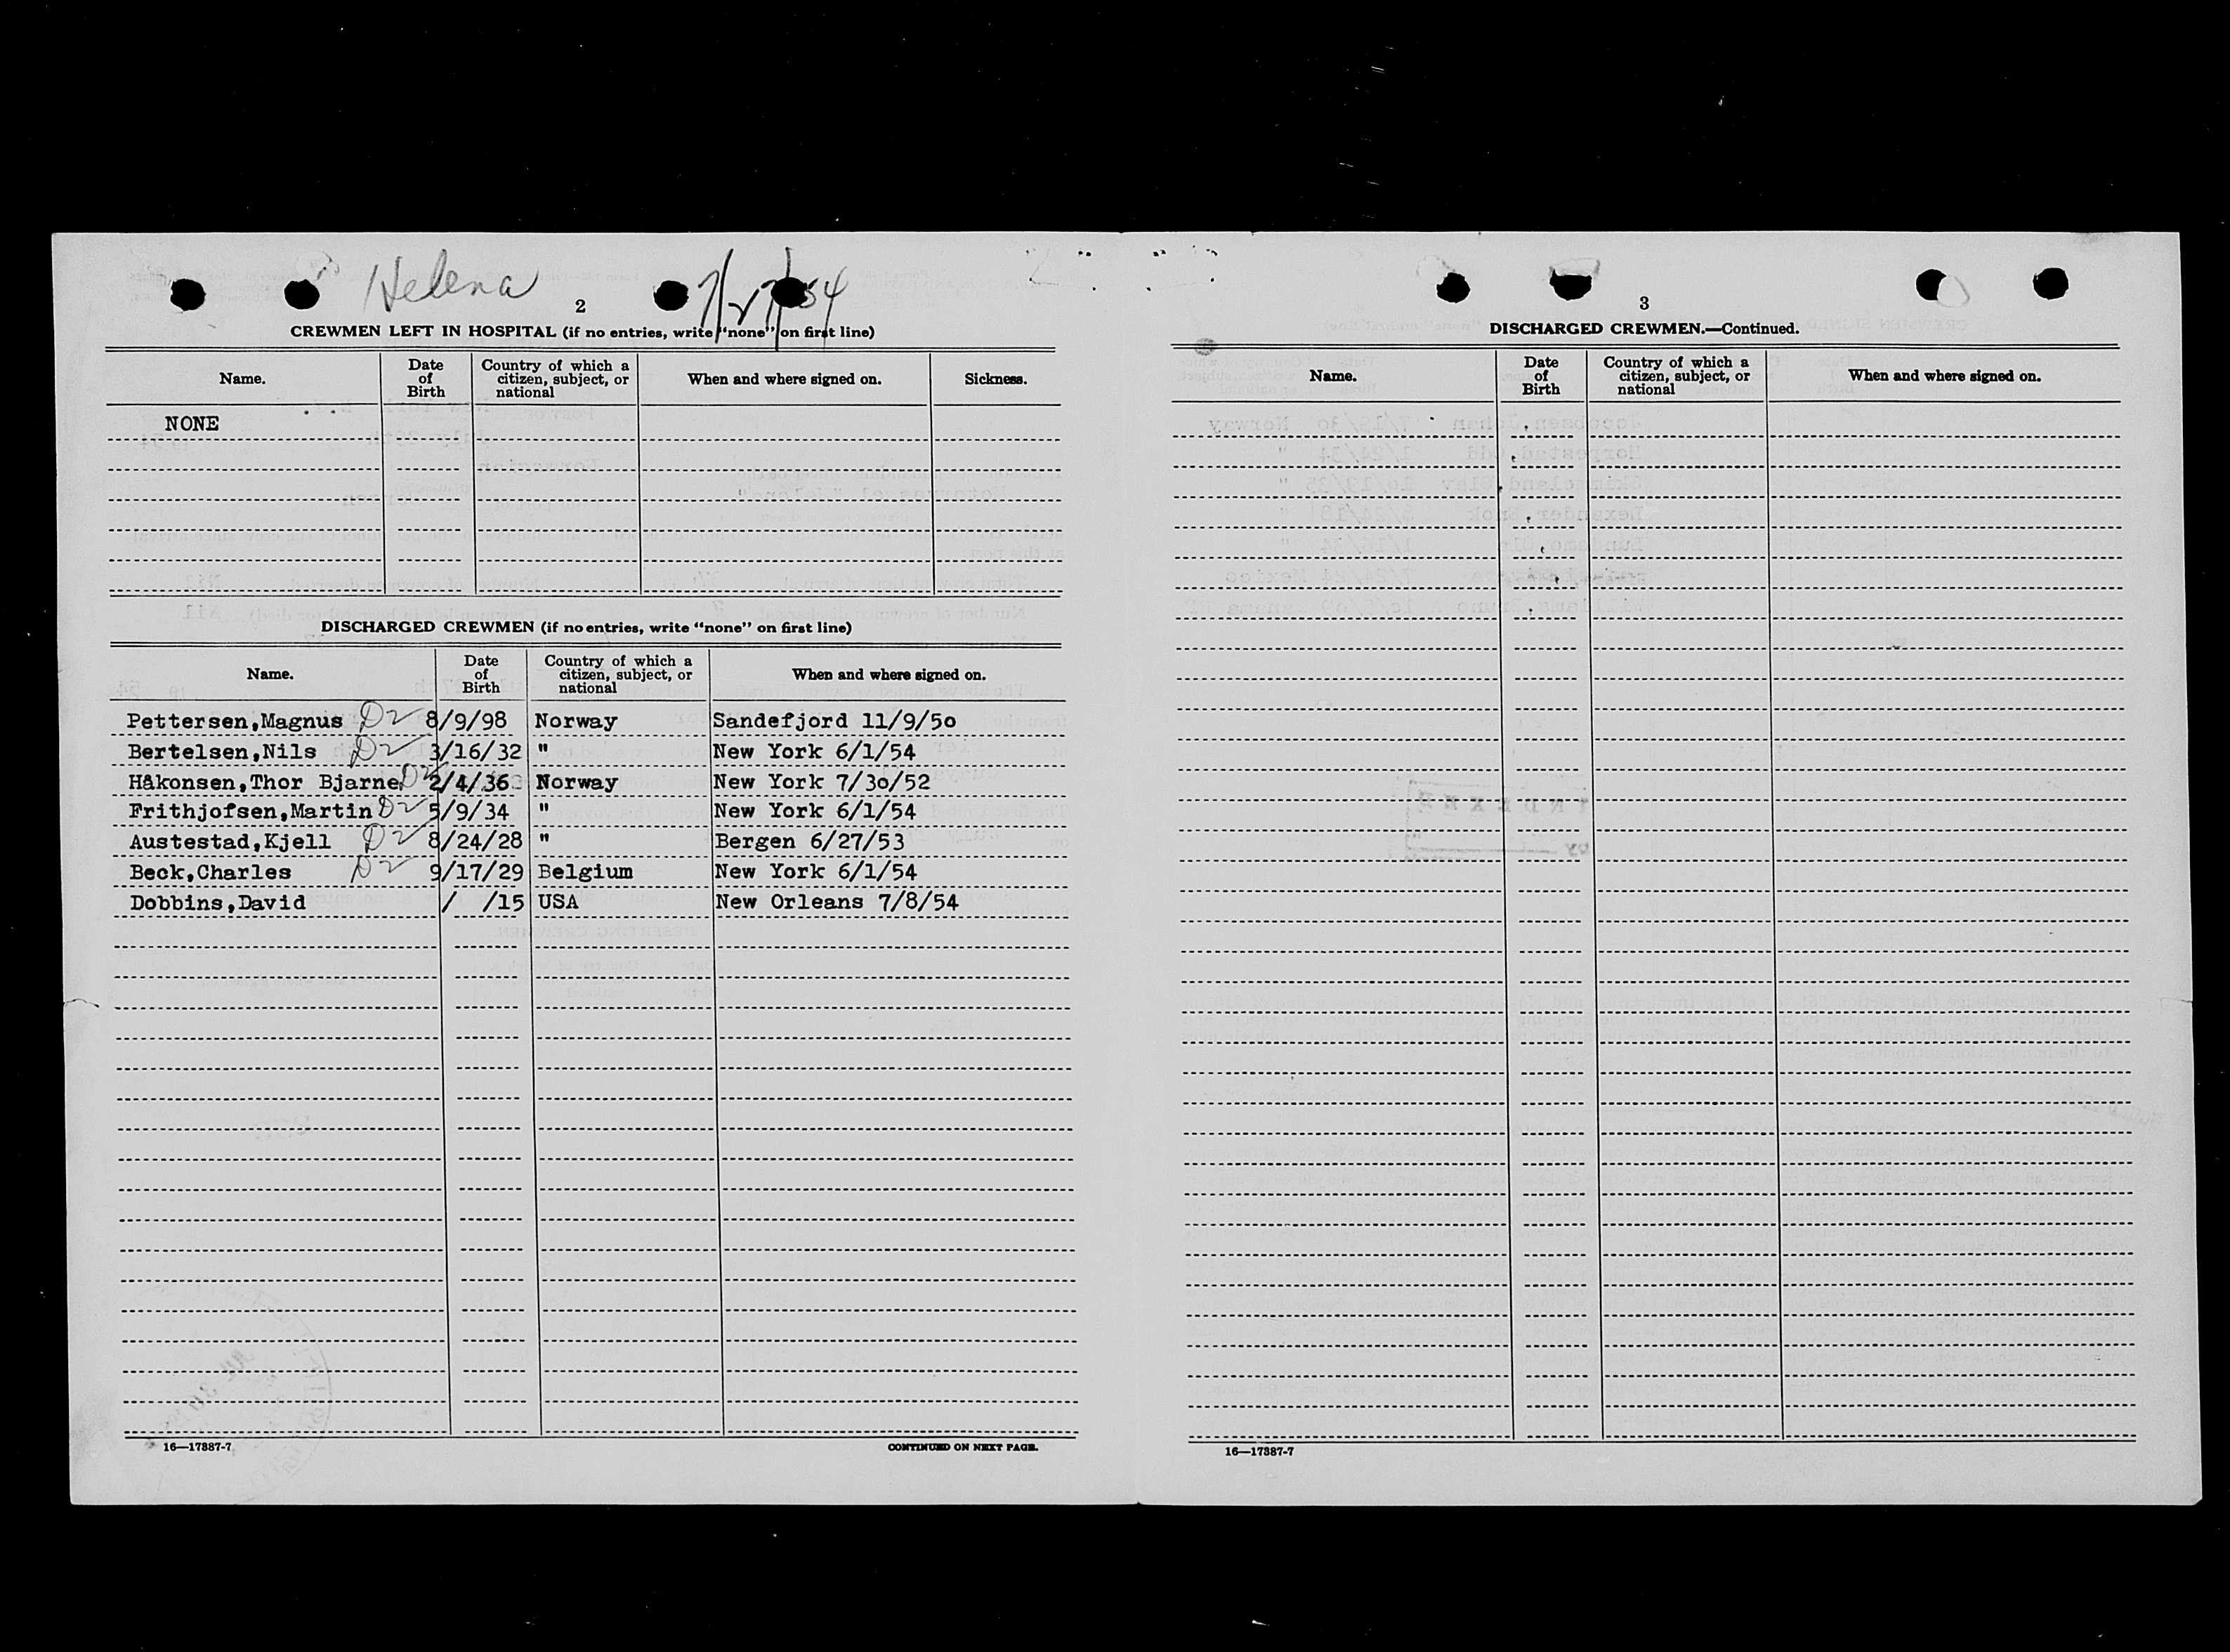 Helena 7/27/54
2
CREWMEN LEFT IN HOSPITAL (if no entries, write "none" on first line)
Name. Date of Birth Country of which a citizen, subject, or national When and where signed on. Sickness.
NONE
DISCHARGED CREWMEN (if no entries, write "none" on first line)
Name. Date of Birth Country of which a citizen, subject, or national When and where signed on.
Pettersen,Magnus D2 8/9/98 Norway Sandefjord 11/9/50
Bertelsen,Nils D2 3/16/32 " New York 6/1/54
Håkonsen,Thor Bjarne D2 2/4/36 Norway New York 7/30/52
Frithjofsen,Martin D2 5/9/34 " New York 6/1/54
Austestad,Kjell D2 8/24/28 " Bergen 6/27/53
Beck,Charles D2 9/17/29 Belgium New York 6/1/54
Dobbins,David / /15 USA New Orleans 7/8/54
16—17887-7 CONTINUED ON NEXT PAGE.
3
DISCHARGED CREWMEN.—Continued.
Name. Date of Birth Country of which a citizen, subject, or national When and where signed on.
16—17887-7